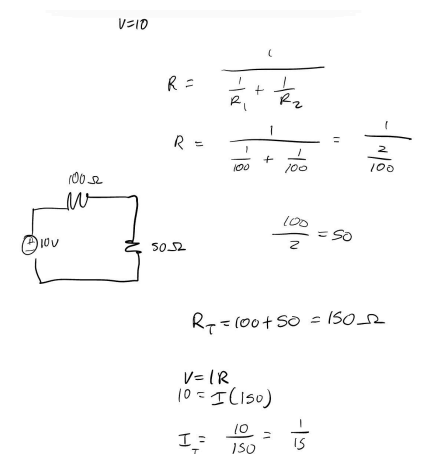 V=10
R = 1 / (1/R₁ + 1/R₂)
R = 1 / (1/100 + 1/100) = 1 / (2/100)
100 Ω
10V
50Ω
100/2 = 50
R_T = 100 + 50 = 150 Ω
V = IR
10 = I(150)
I_T = 10/150 = 1/15